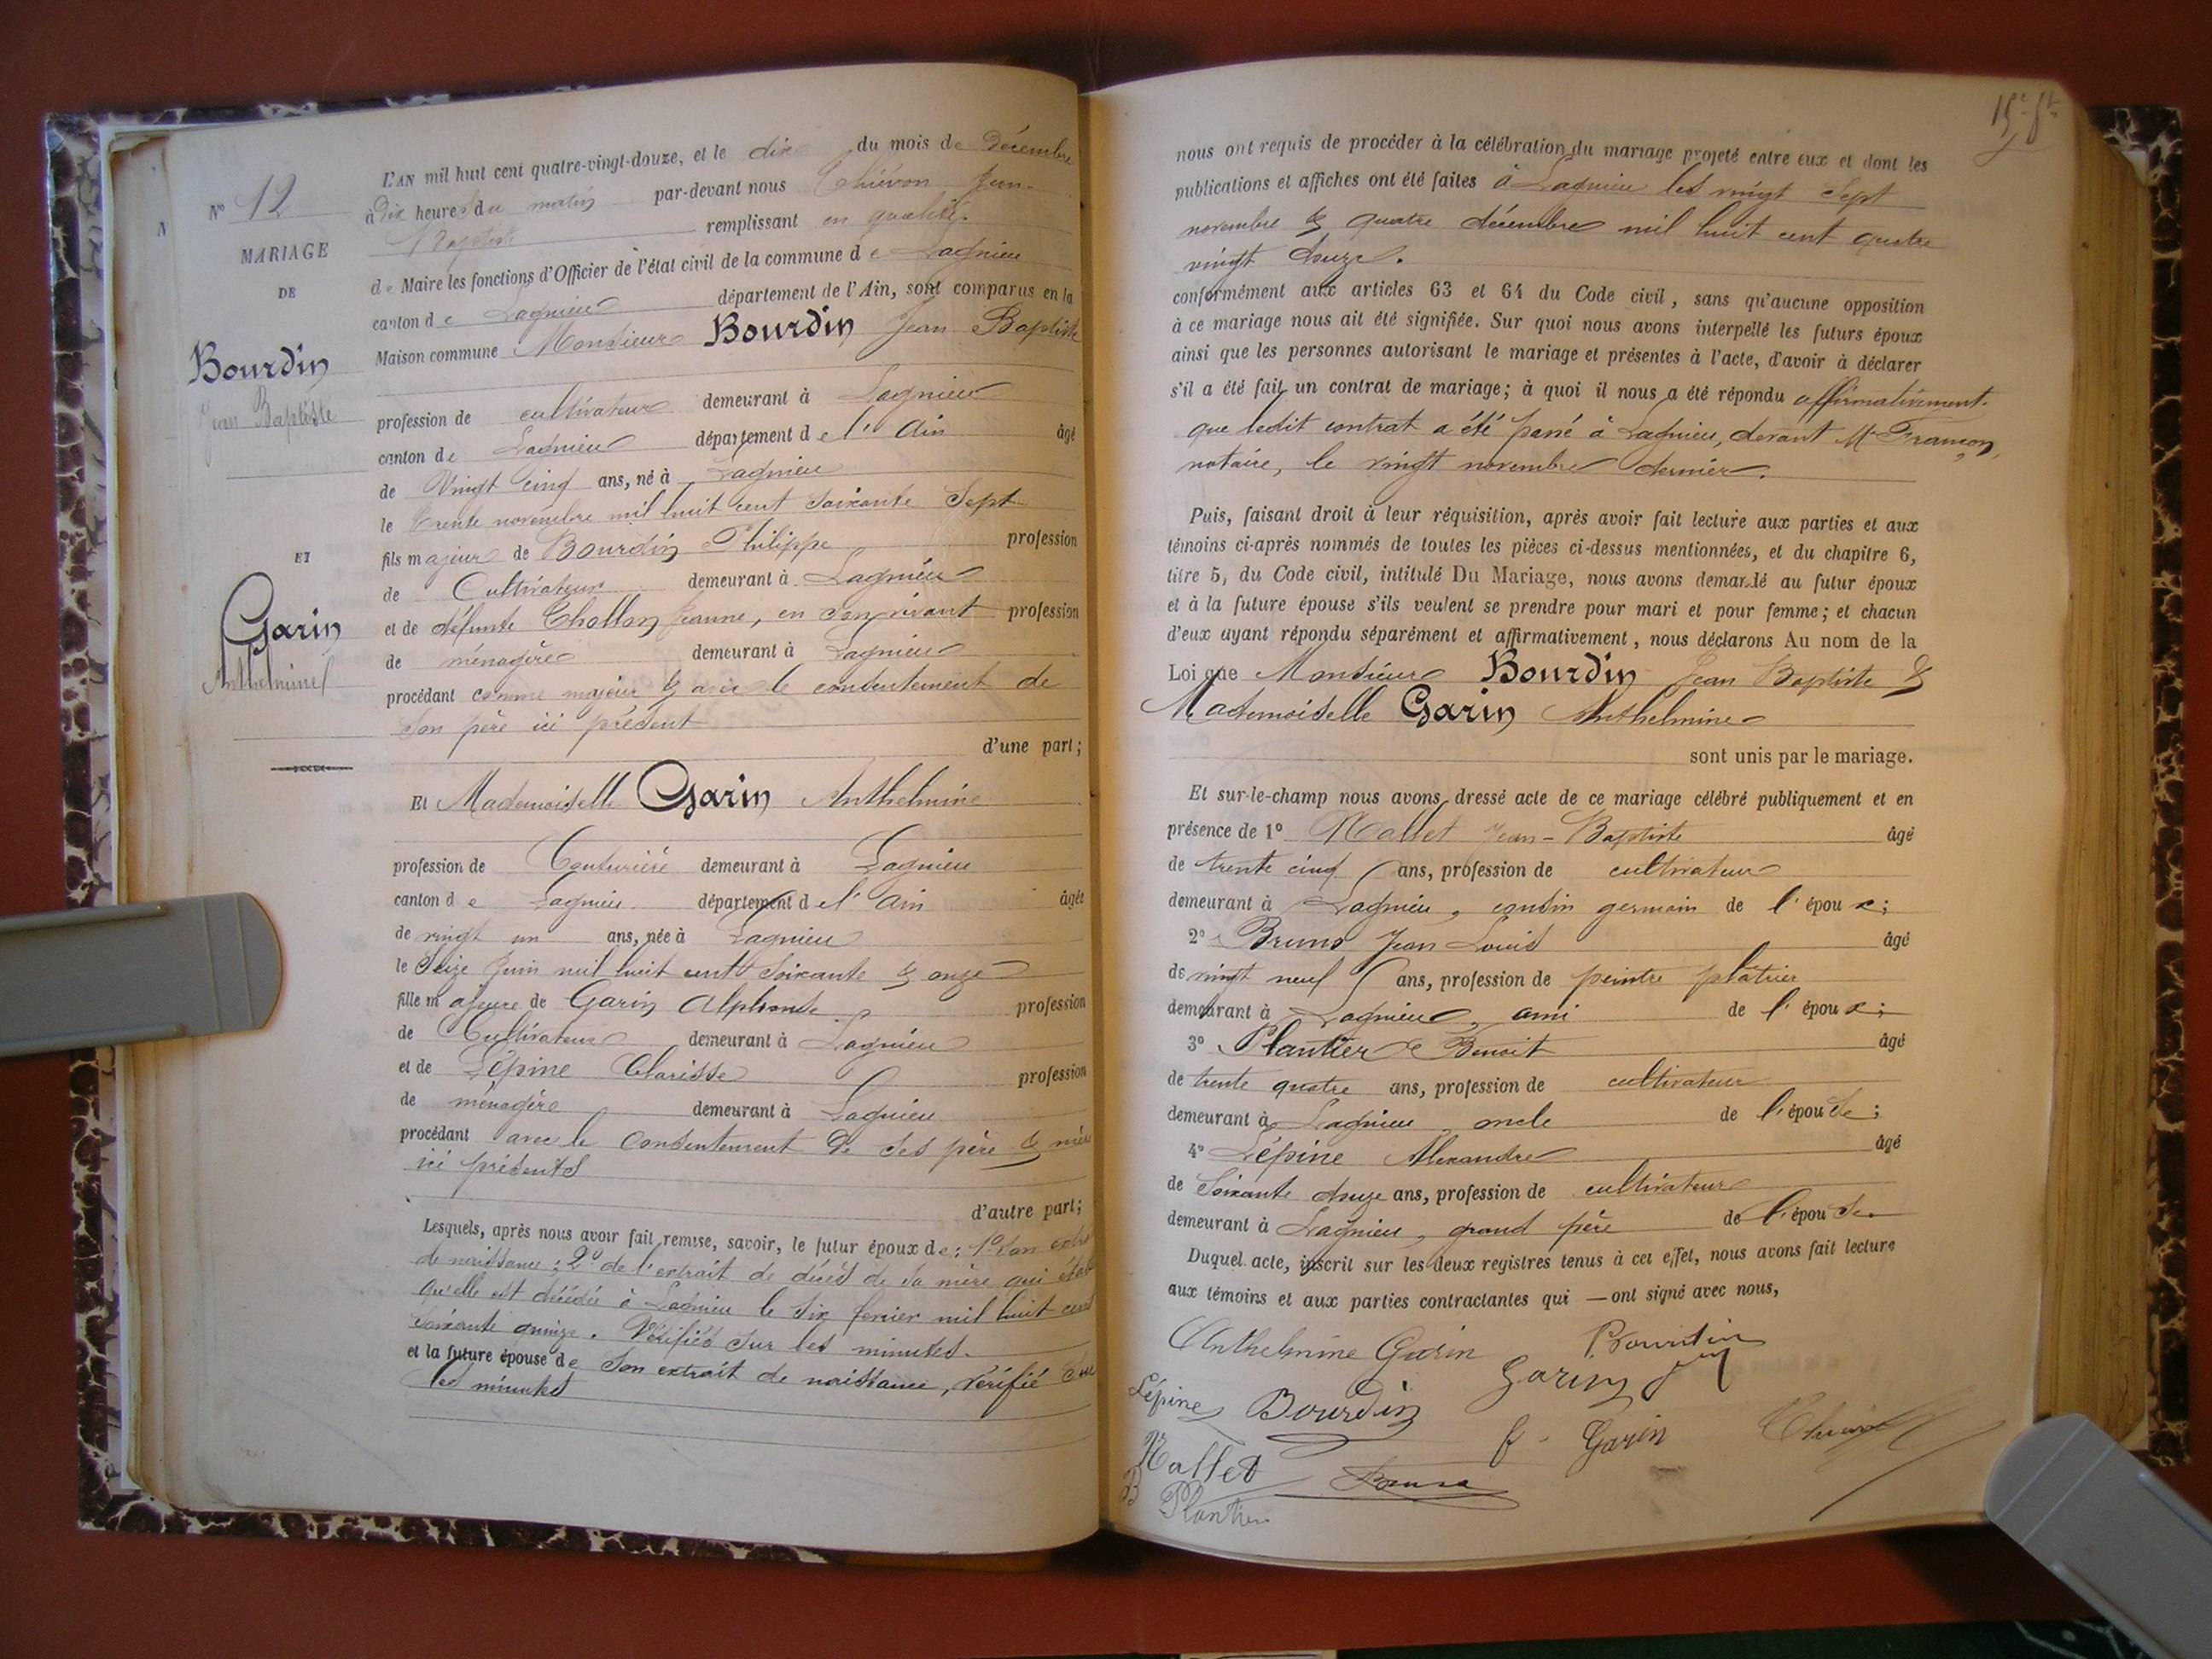 N° 12
MARIAGE
DE
Bourdin
Jean Baptiste
ET
Garin
Anthelmine
L'AN mil huit cent quatre-vingt-douze, et le dix du mois de Décembre
à Dix heures du matin par-devant nous Thiévon Jean-
Baptiste remplissant en qualité
de Maire les fonctions d'Officier de l'état civil de la commune de Lagnieu
canton de Lagnieu département de l'Ain, sont comparus en la
Maison commune Monsieur Bourdin Jean Baptiste
profession de cultivateur demeurant à Lagnieu
canton de Lagnieu département de l'Ain âgé
de Vingt cinq ans, né à Lagnieu
le Trente novembre mil huit cent soixante Sept
fils majeur de Bourdin Philippe profession
de Cultivateur demeurant à Lagnieu
et de défunte Chollon Jeanne, en son vivant profession
de ménagère demeurant à Lagnieu
procédant comme majeur & avec le consentement de
son père ici présent
d'une part;
Et Mademoiselle Garin Anthelmine
profession de Couturière demeurant à Lagnieu
canton de Lagnieu département de l'Ain âgée
de vingt un ans, née à Lagnieu
le Seize Juin mil huit cent soixante & onze
fille majeure de Garin Alphonse profession
de Cultivateur demeurant à Lagnieu
et de Lépine Clarisse profession
de ménagère demeurant à Lagnieu
procédant avec le consentement de ses père & mère
ici présents
d'autre part;
Lesquels, après nous avoir fait remise, savoir, le futur époux de: 1° son
de naissance; 2° de l'extrait de décès de sa mère qui
qu'elle est décédée à Lagnieu le six fevrier mil huit cent
soixante quinze. Vérifiés sur les minutes.
et la future épouse de son extrait de naissance, vérifié sur
les minutes
nous ont requis de procéder à la célébration du mariage projeté entre eux et dont les
publications et affiches ont été faites à Lagnieu les vingt sept
novembre & quatre décembre mil huit cent quatre
vingt douze.
conformément aux articles 63 et 64 du Code civil, sans qu'aucune opposition
à ce mariage nous ait été signifiée. Sur quoi nous avons interpellé les futurs époux
ainsi que les personnes autorisant le mariage et présentes à l'acte, d'avoir à déclarer
s'il a été fait un contrat de mariage; à quoi il nous a été répondu affirmativement.
que ledit contrat a été passé à Lagnieu, devant Me Françon,
notaire, le vingt novembre dernier.
Puis, faisant droit à leur réquisition, après avoir fait lecture aux parties et aux
témoins ci-après nommés de toutes les pièces ci-dessus mentionnées, et du chapitre 6,
titre 5, du Code civil, intitulé Du Mariage, nous avons demandé au futur époux
et à la future épouse s'ils veulent se prendre pour mari et pour femme; et chacun
d'eux ayant répondu séparément et affirmativement, nous déclarons Au nom de la
Loi que Monsieur Bourdin Jean Baptiste &
Mademoiselle Garin Anthelmine
sont unis par le mariage.
Et sur-le-champ nous avons dressé acte de ce mariage célébré publiquement et en
présence de 1° Rallet Jean-Baptiste âgé
de trente cinq ans, profession de cultivateur
demeurant à Lagnieu, cousin germain de l'époux;
2° Bruno Jean Louis âgé
de vingt neuf ans, profession de peintre plâtrier
demeurant à Lagnieu, ami de l'époux;
3° Plantier Benoit âgé
de trente quatre ans, profession de cultivateur
demeurant à Lagnieu, oncle de l'épouse;
4° Lépine Alexandre âgé
de Soixante douze ans, profession de cultivateur
demeurant à Lagnieu, grand père de l'épouse
Duquel acte, inscrit sur les deux registres tenus à cet effet, nous avons fait lecture
aux témoins et aux parties contractantes qui — ont signé avec nous,
Anthelmine Garin Bourdin
Garin
Lépine Bourdin
Rallet f. Garin
B Plantier Bruno